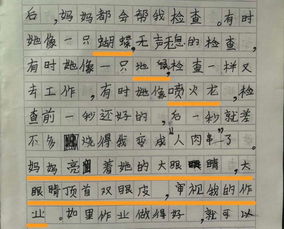 后，妈妈都会帮我检查。有时
她像一只蝴蝶，无声无息的检查，
有时她像一只地鼠，检查一样又
去工作，有时她像喷火龙，检
查前一秒还好的，后一秒就差
不多 说得我变成"人肉串"了。
妈妈亮着她的大眼睛，大
眼睛顶着双眼皮，审视我的作
业。如里作业做得好，就可以